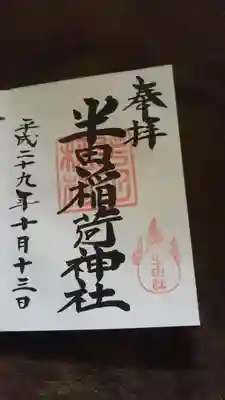 奉拝
半田稲荷神社
平成二十九年十月十三日